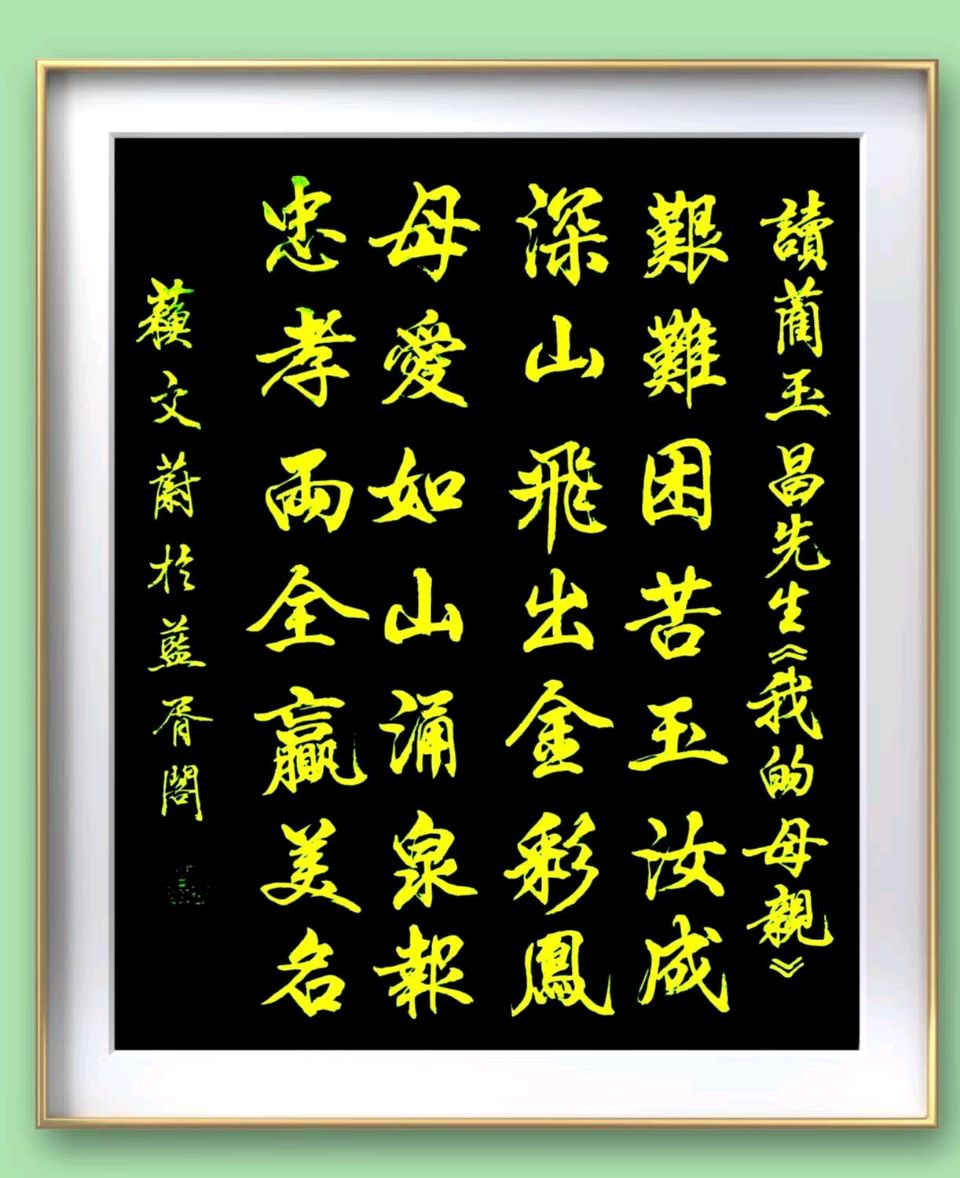 讀藺玉昌先生《我的母親》
艱難困苦玉汝成
深山飛出金彩鳳
母愛如山涌泉報
忠孝兩全贏美名
蘓文蔚於藍胥閣